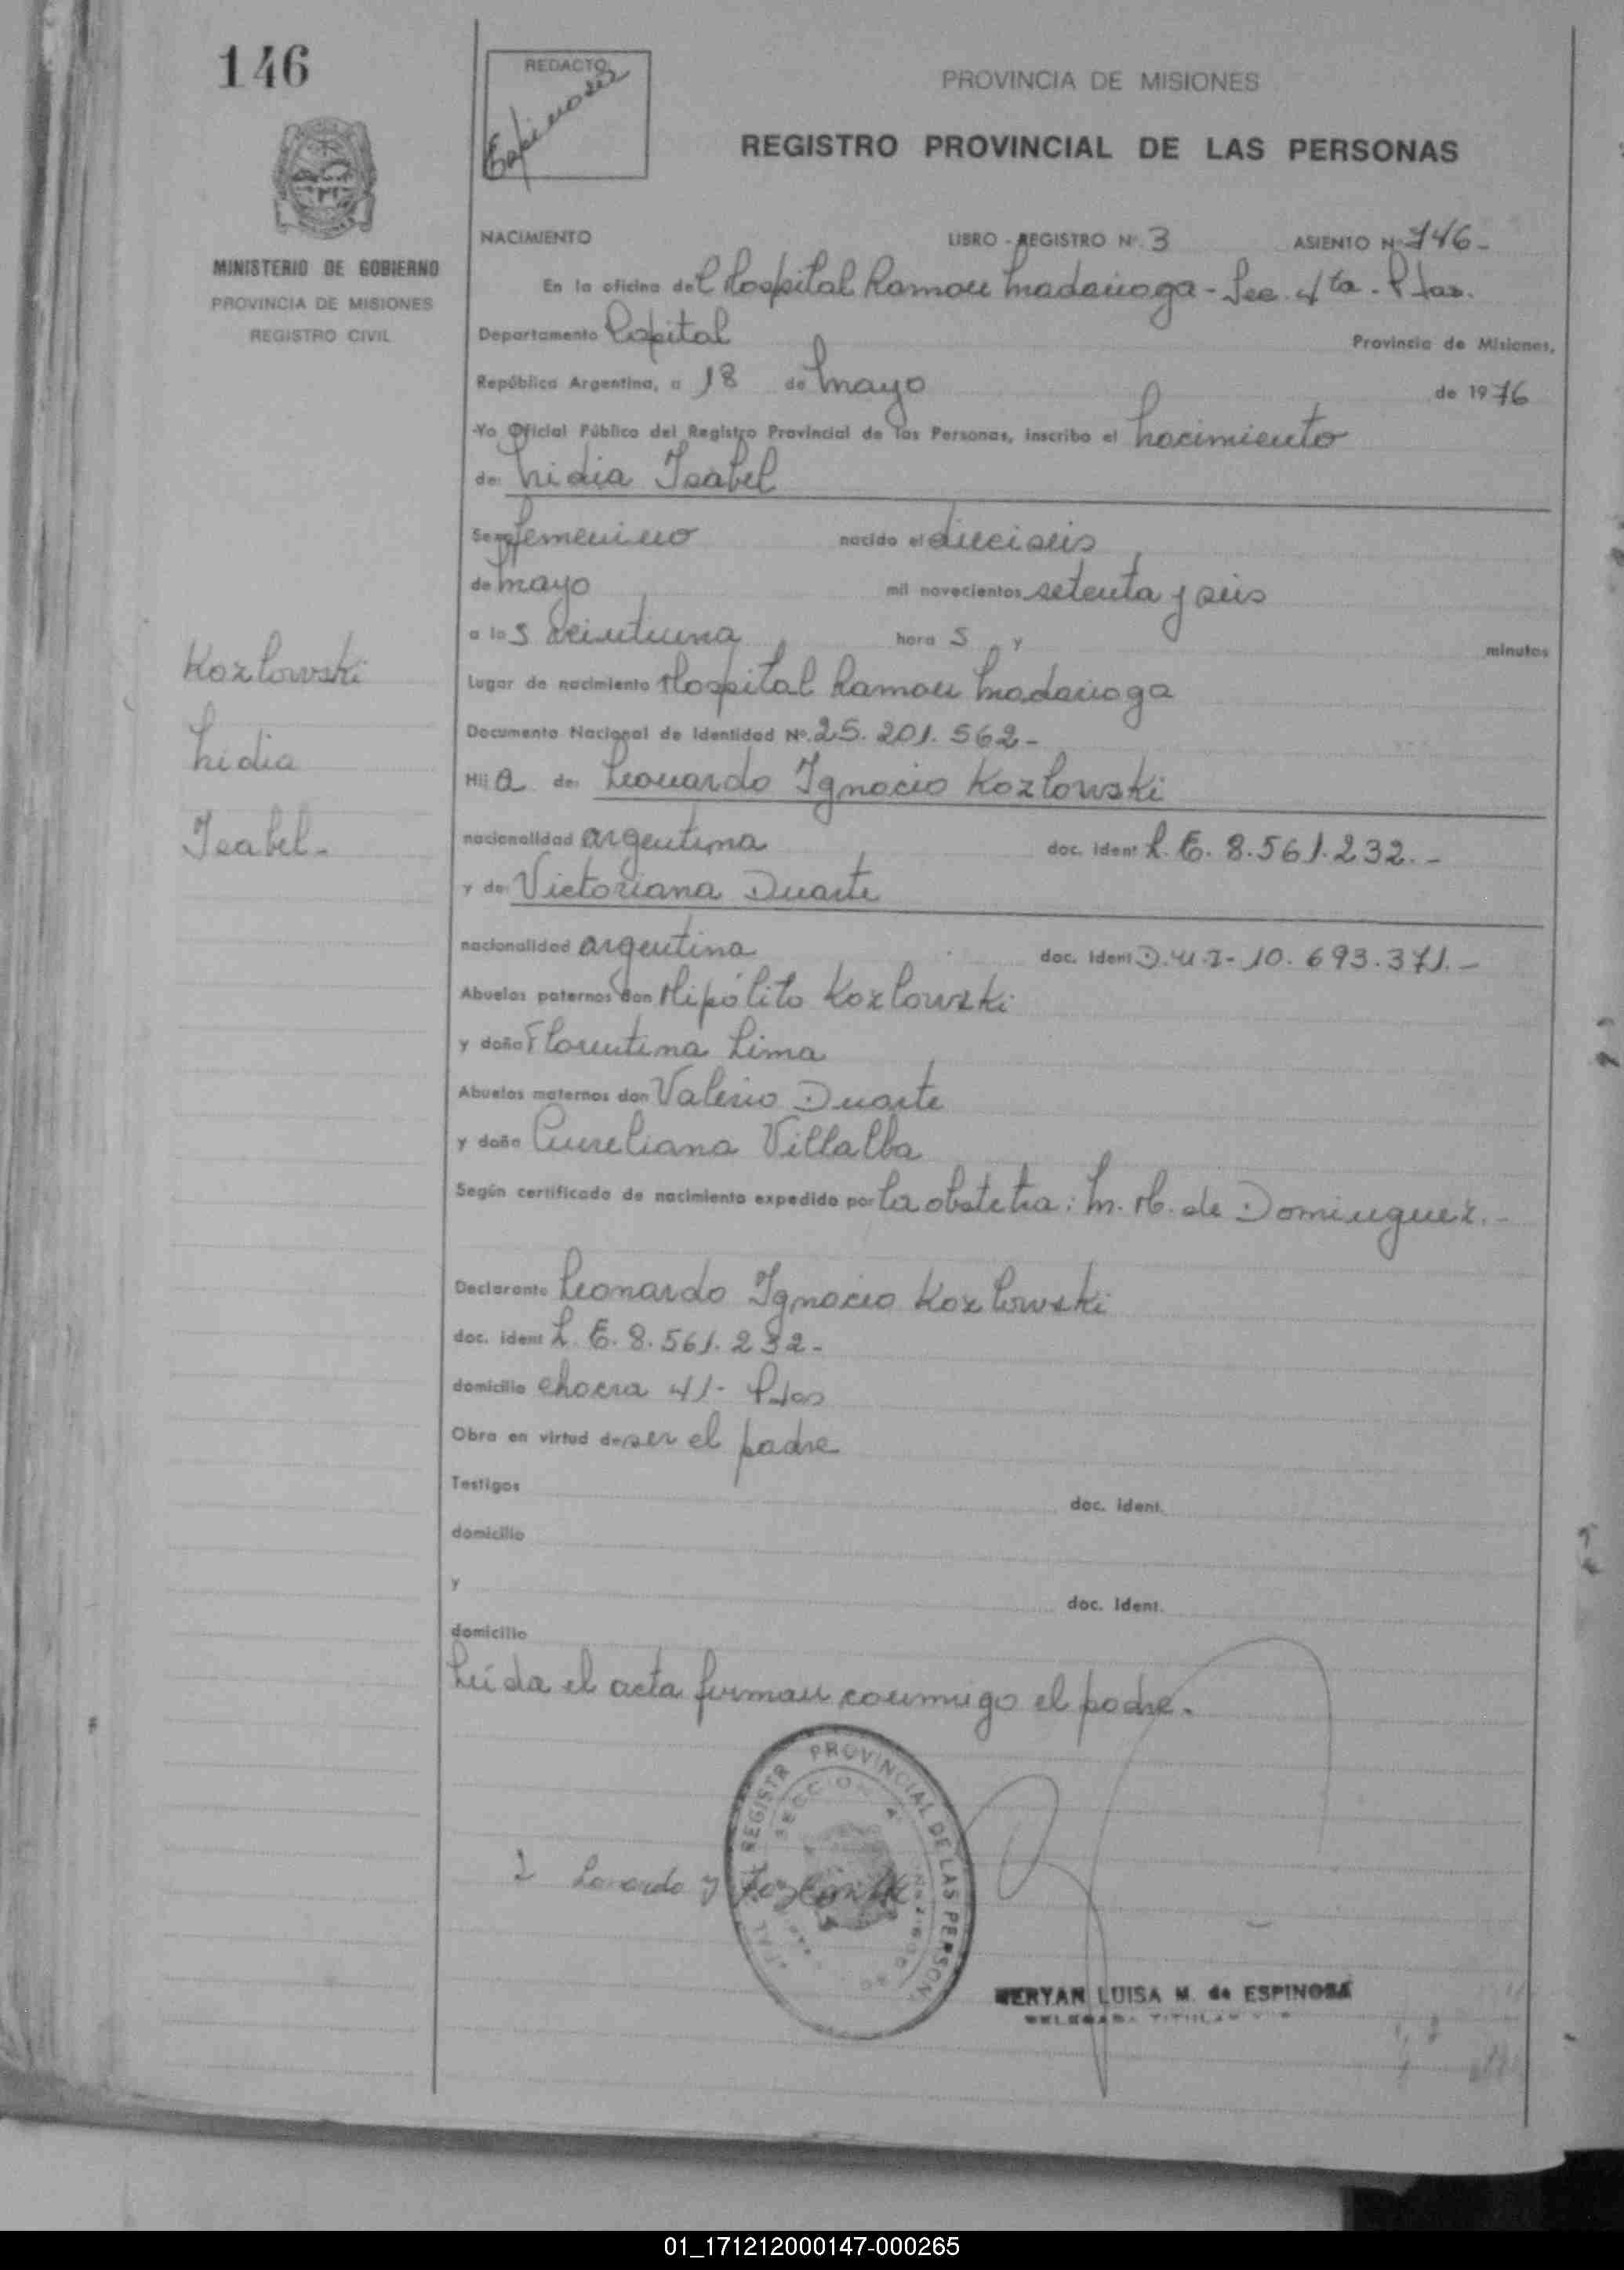 146
REDACTO
Espinosa
PROVINCIA DE MISIONES
REGISTRO PROVINCIAL DE LAS PERSONAS
MINISTERIO DE GOBIERNO
PROVINCIA DE MISIONES
REGISTRO CIVIL
NACIMIENTO LIBRO - REGISTRO Nº. 3 ASIENTO Nº 746-
En la oficina del Hospital Ramon Madariaga - Sec. 4ta. Pdas.
Departamento Capital Provincia de Misiones,
República Argentina, a 18 de Mayo de 1976
Yo Oficial Público del Registro Provincial de las Personas, inscribo el Nacimiento
de: Lidia Isabel
Sexo femenino nacido el dieciseis
de Mayo mil novecientos setenta y seis
a las veintiuna hora s y minutos
Kozlowski
Lugar de nacimiento Hospital Ramon Madariaga
Documento Nacional de Identidad Nº. 25.201.562-
Lidia
Hija de: Leonardo Ignacio Kozlowski
Isabel-
nacionalidad argentina doc. ident L.E. 8.561.232.-
y de: Victoriana Duarte
nacionalidad argentina doc. ident D.N.I- 10.693.371.-
Abuelos paternos don Hipólito Kozlowski
y doña Florentina Lima
Abuelos maternos don Valerio Duarte
y doña Aureliana Villalba
Según certificado de nacimiento expedido por la obstetra: M. H. de Dominguez.-
Declarante Leonardo Ignacio Kozlowski
doc. ident L.E. 8.561.232-
domicilio chacra 41- Pdas
Obra en virtud de ser el padre
Testigos doc. ident.
domicilio
y doc. ident.
domicilio
Leída el acta firman conmigo el padre.
REGISTR PROVINCIAL DE LAS PERSON
SECCION 4
MERYAN LUISA M. de ESPINOSA
DELEGADA TITULAR
01_171212000147-000265